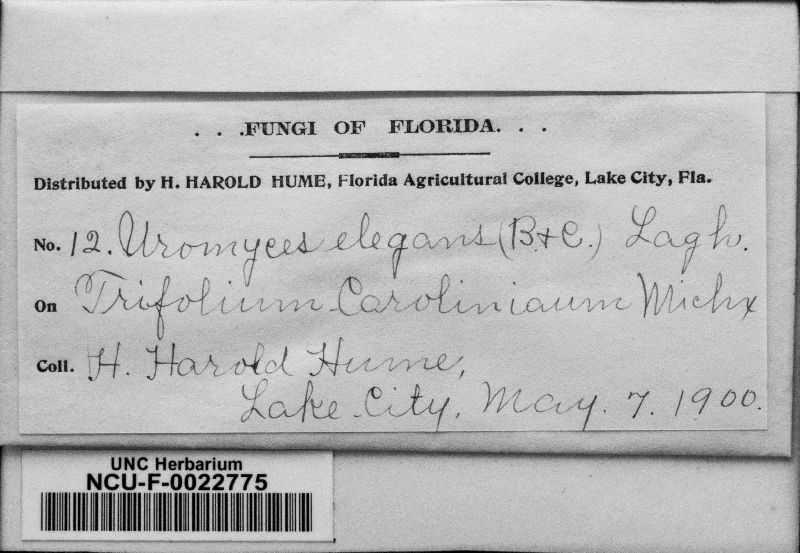 . . .FUNGI OF FLORIDA. . .
Distributed by H. HAROLD HUME, Florida Agricultural College, Lake City, Fla.
No. 12. Uromyces elegans (B.+C.) Lagh.
On Trifolium Caroliniaum Michx
Coll. H. Harold Hume,
Lake City, May. 7. 1900.
UNC Herbarium
NCU-F-0022775